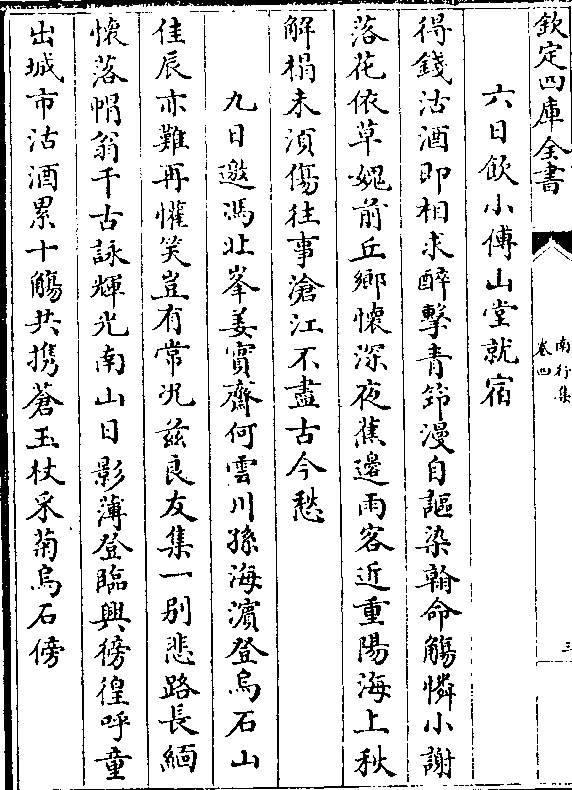 欽定四庫全書
南行集
卷四
三
六日飲小傅山堂就宿
得錢沽酒即相求醉擊青笻漫自謳染翰命觴憐小謝
落花依草媿前丘鄉懷深夜蕉邊雨客近重陽海上秋
解榻未須傷往事滄江不盡古今愁
九日邀馮北峯姜實齋何雲川孫海濵登烏石山
佳辰亦難再懽笑豈有常况兹良友集一别悲路長緬
懷落帽翁千古詠輝光南山日影薄登臨興徬徨呼童
出城市沽酒累十觴共攜蒼玉杖采菊烏石傍